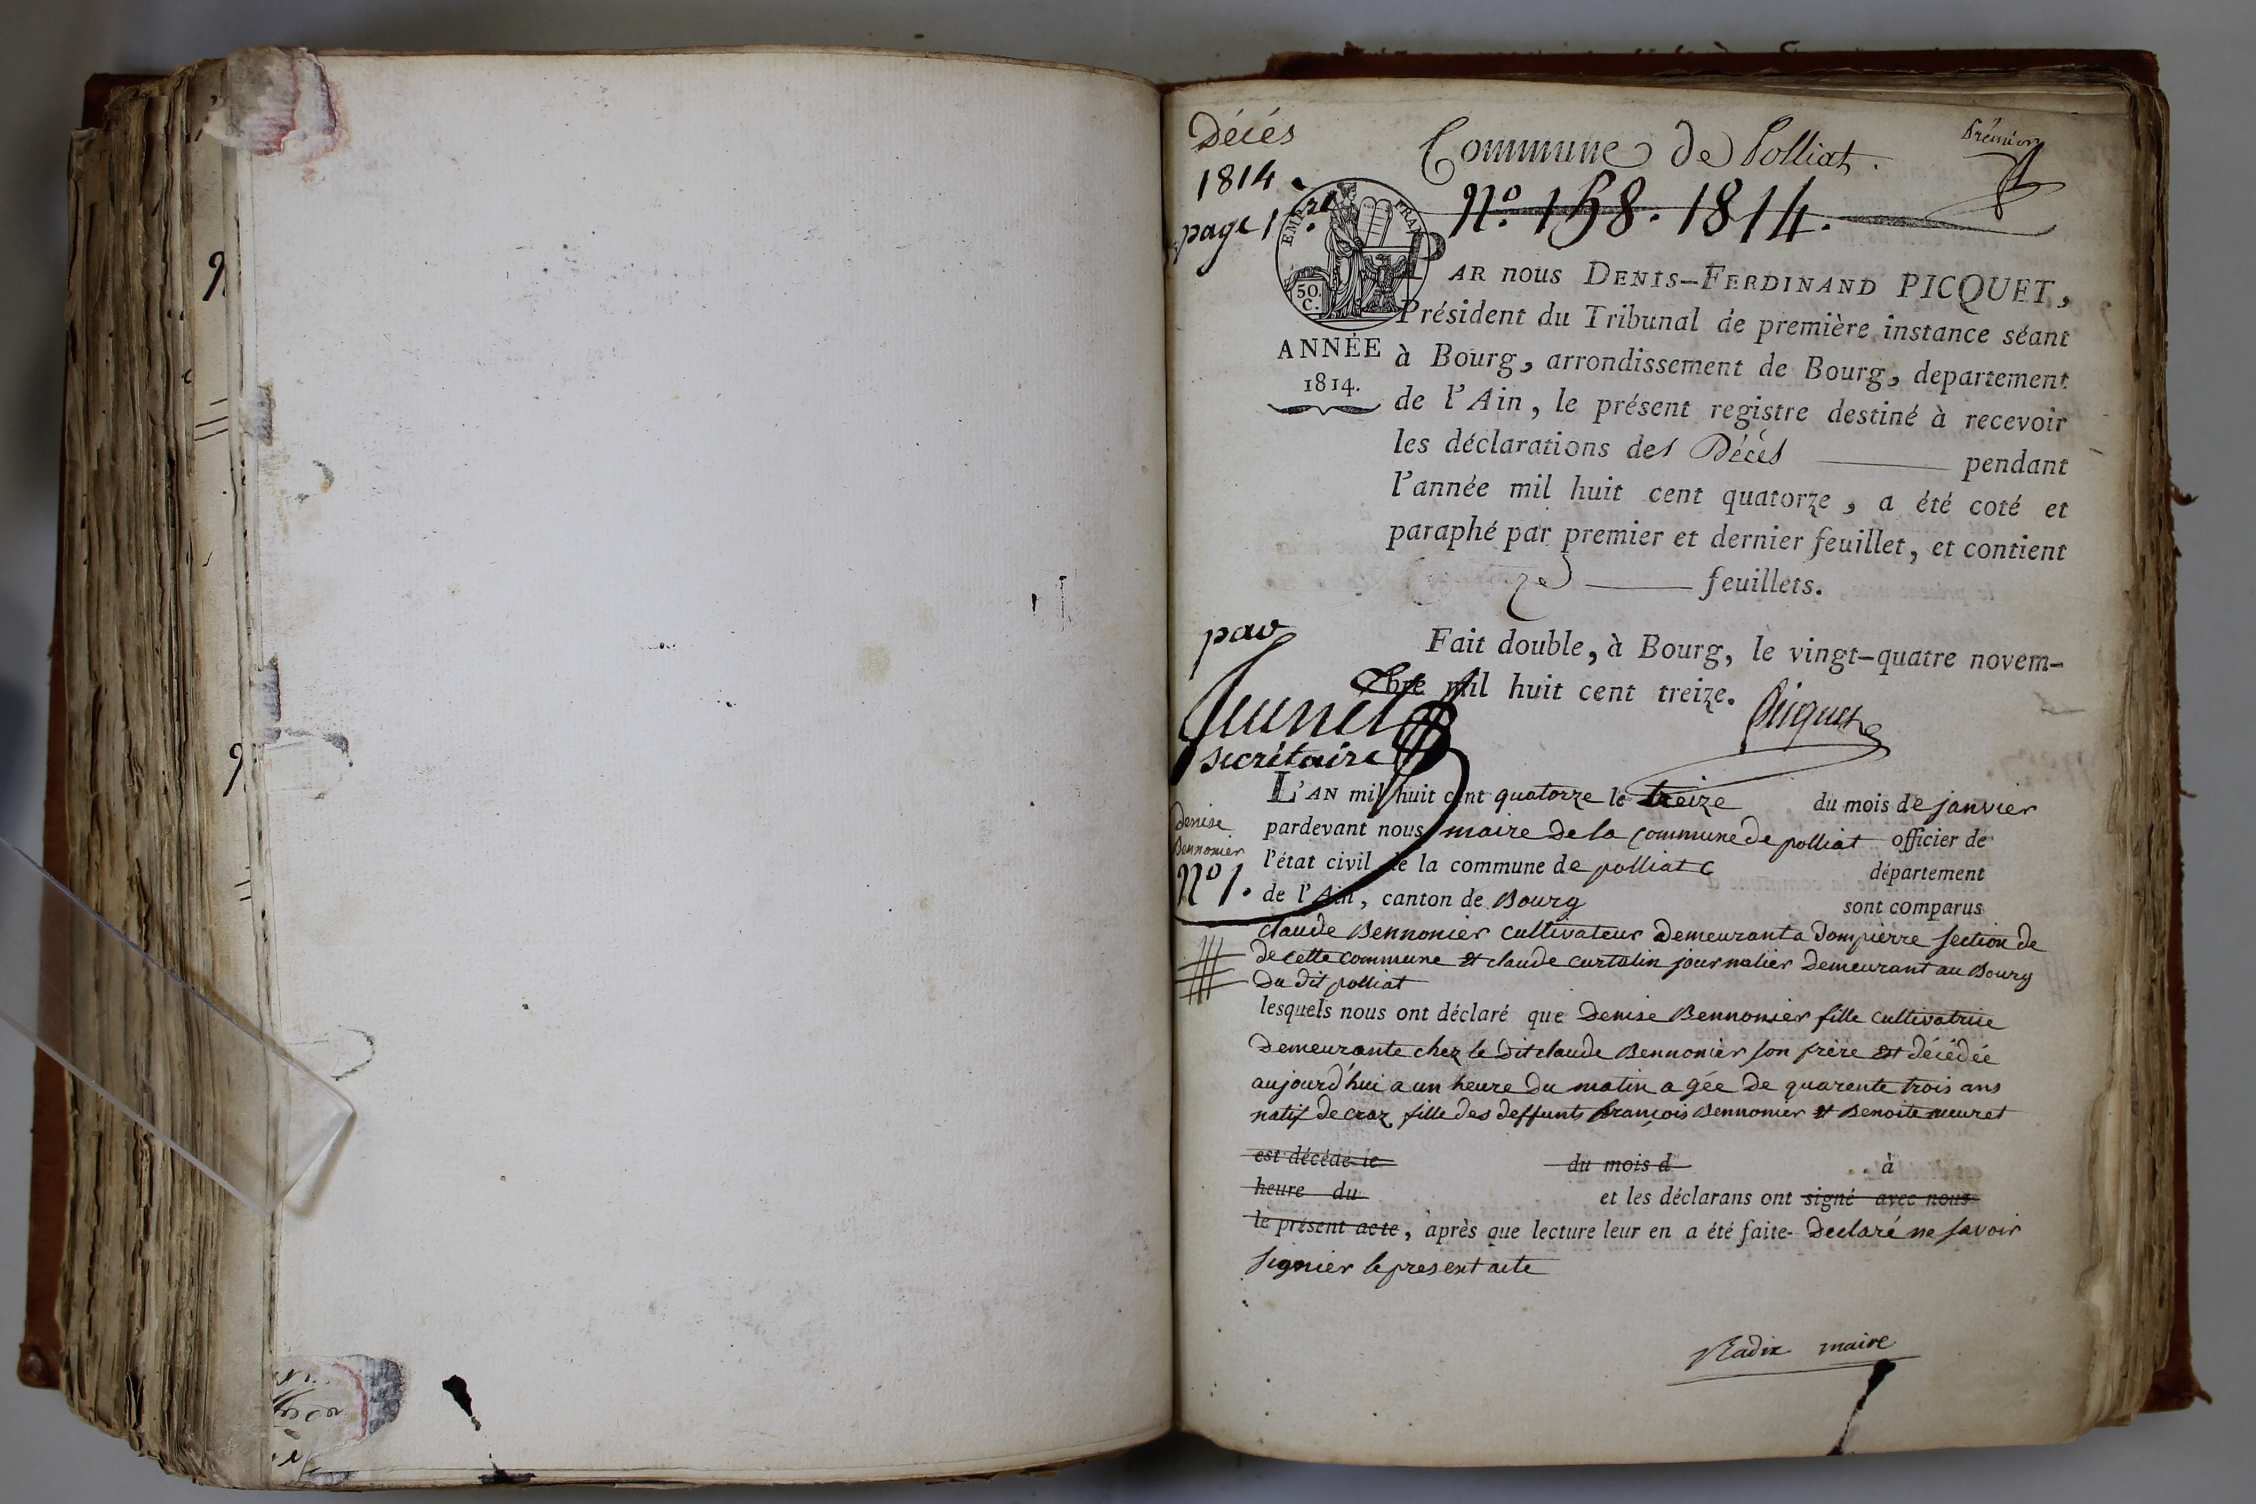 Décés
1814.
page 1ere.
Commune de Polliat.
Premier
N.º 158. 1814.
EMP. FRAN
50.
C.
ANNÉE
1814.
PAR nous DENIS-FERDINAND PICQUET,
Président du Tribunal de première instance séant
à Bourg, arrondissement de Bourg, departement
de l'Ain, le présent registre destiné à recevoir
les déclarations des Décés pendant
l'année mil huit cent quatorze, a été coté et
paraphé par premier et dernier feuillet, et contient
feuillets.
Fait double, à Bourg, le vingt-quatre novem-
bre mil huit cent treize.
Picquet
par
secrétaire
L'AN mil huit cent quatorze le treize du mois de janvier
pardevant nous maire de la Commune de polliat officier de
l'état civil de la commune de polliat département
de l'Ain, canton de Bourg sont comparus
Denise
Bennonier
Nº 1.
claude Bennonier cultivateur demeurant a dompierre section de
de cette commune et claude curtalin journalier demeurant au Bourg
du dit polliat
lesquels nous ont déclaré que denise Bennonier fille cultivatrice
demeurante chez le dit claude Bennonier son frère est décédée
aujourd'hui a un heure du matin agée de quarente trois ans
natif de craz fille des deffunts françois Bennonier et Benoite meuret
est décédé le du mois d à
heure du et les déclarans ont signé avec nous
le présent acte, après que lecture leur en a été faite- declaré ne savoir
signier le present acte
Radix maire